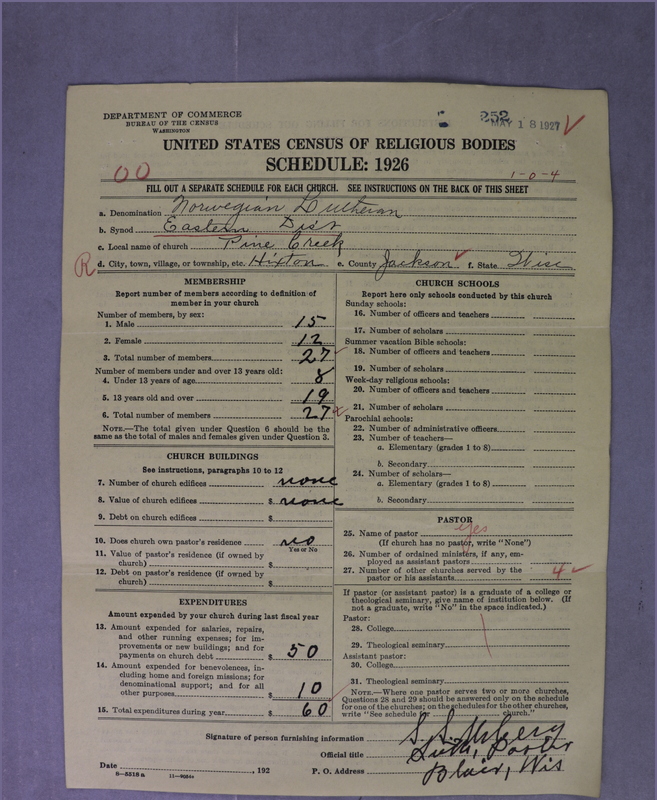 DEPARTMENT OF COMMERCE
BUREAU OF THE CENSUS
WASHINGTON
252
MAY 18 1927
UNITED STATES CENSUS OF RELIGIOUS BODIES
SCHEDULE: 1926
00
1-0-4
FILL OUT A SEPARATE SCHEDULE FOR EACH CHURCH. SEE INSTRUCTIONS ON THE BACK OF THIS SHEET
a. Denomination Norwegian Lutheran
b. Synod Eastern Dist
c. Local name of church Pine Creek
R
d. City, town, village, or township, etc. Hixton e. County Jackson f. State Wisc
MEMBERSHIP
Report number of members according to definition of
member in your church
Number of members, by sex:
1. Male 15
2. Female 12
3. Total number of members 27
Number of members under and over 13 years old:
4. Under 13 years of age 8
5. 13 years old and over 19
6. Total number of members 27
NOTE.—The total given under Question 6 should be the
same as the total of males and females given under Question 3.
CHURCH BUILDINGS
See instructions, paragraphs 10 to 12
7. Number of church edifices none
8. Value of church edifices $ none
9. Debt on church edifices $
10. Does church own pastor's residence no
Yes or No
11. Value of pastor's residence (if owned by
church) $
12. Debt on pastor's residence (if owned by
church) $
EXPENDITURES
Amount expended by your church during last fiscal year
13. Amount expended for salaries, repairs,
and other running expenses; for im-
provements or new buildings; and for
payments on church debt $ 50
14. Amount expended for benevolences, in-
cluding home and foreign missions; for
denominational support; and for all
other purposes $ 10
15. Total expenditures during year $ 60
CHURCH SCHOOLS
Report here only schools conducted by this church
Sunday schools:
16. Number of officers and teachers
17. Number of scholars
Summer vacation Bible schools:
18. Number of officers and teachers
19. Number of scholars
Week-day religious schools:
20. Number of officers and teachers
21. Number of scholars
Parochial schools:
22. Number of administrative officers
23. Number of teachers—
a. Elementary (grades 1 to 8)
b. Secondary
24. Number of scholars—
a. Elementary (grades 1 to 8)
b. Secondary
PASTOR
25. Name of pastor yes
(If church has no pastor, write "None")
26. Number of ordained ministers, if any, em-
ployed as assistant pastors
27. Number of other churches served by the
pastor or his assistants 4
If pastor (or assistant pastor) is a graduate of a college or
theological seminary, give name of institution below. (If
not a graduate, write "No" in the space indicated.)
Pastor:
28. College
29. Theological seminary
Assistant pastor:
30. College
31. Theological seminary
NOTE.—Where one pastor serves two or more churches,
Questions 28 and 29 should be answered only on the schedule
for one of the churches; on the schedules for the other churches,
write "See schedule for church."
Signature of person furnishing information S. S.
Official title Luth. Pastor
Date , 192 P. O. Address Blair, Wis
8-5518 a